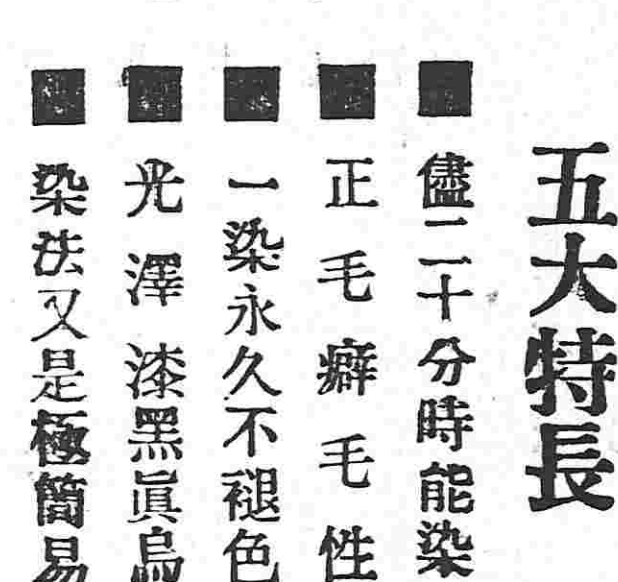 五大特長
■儘二十分時能染
■正毛癖毛性
■一染永久不褪色
■光澤漆黑眞烏
■染法又是極簡易